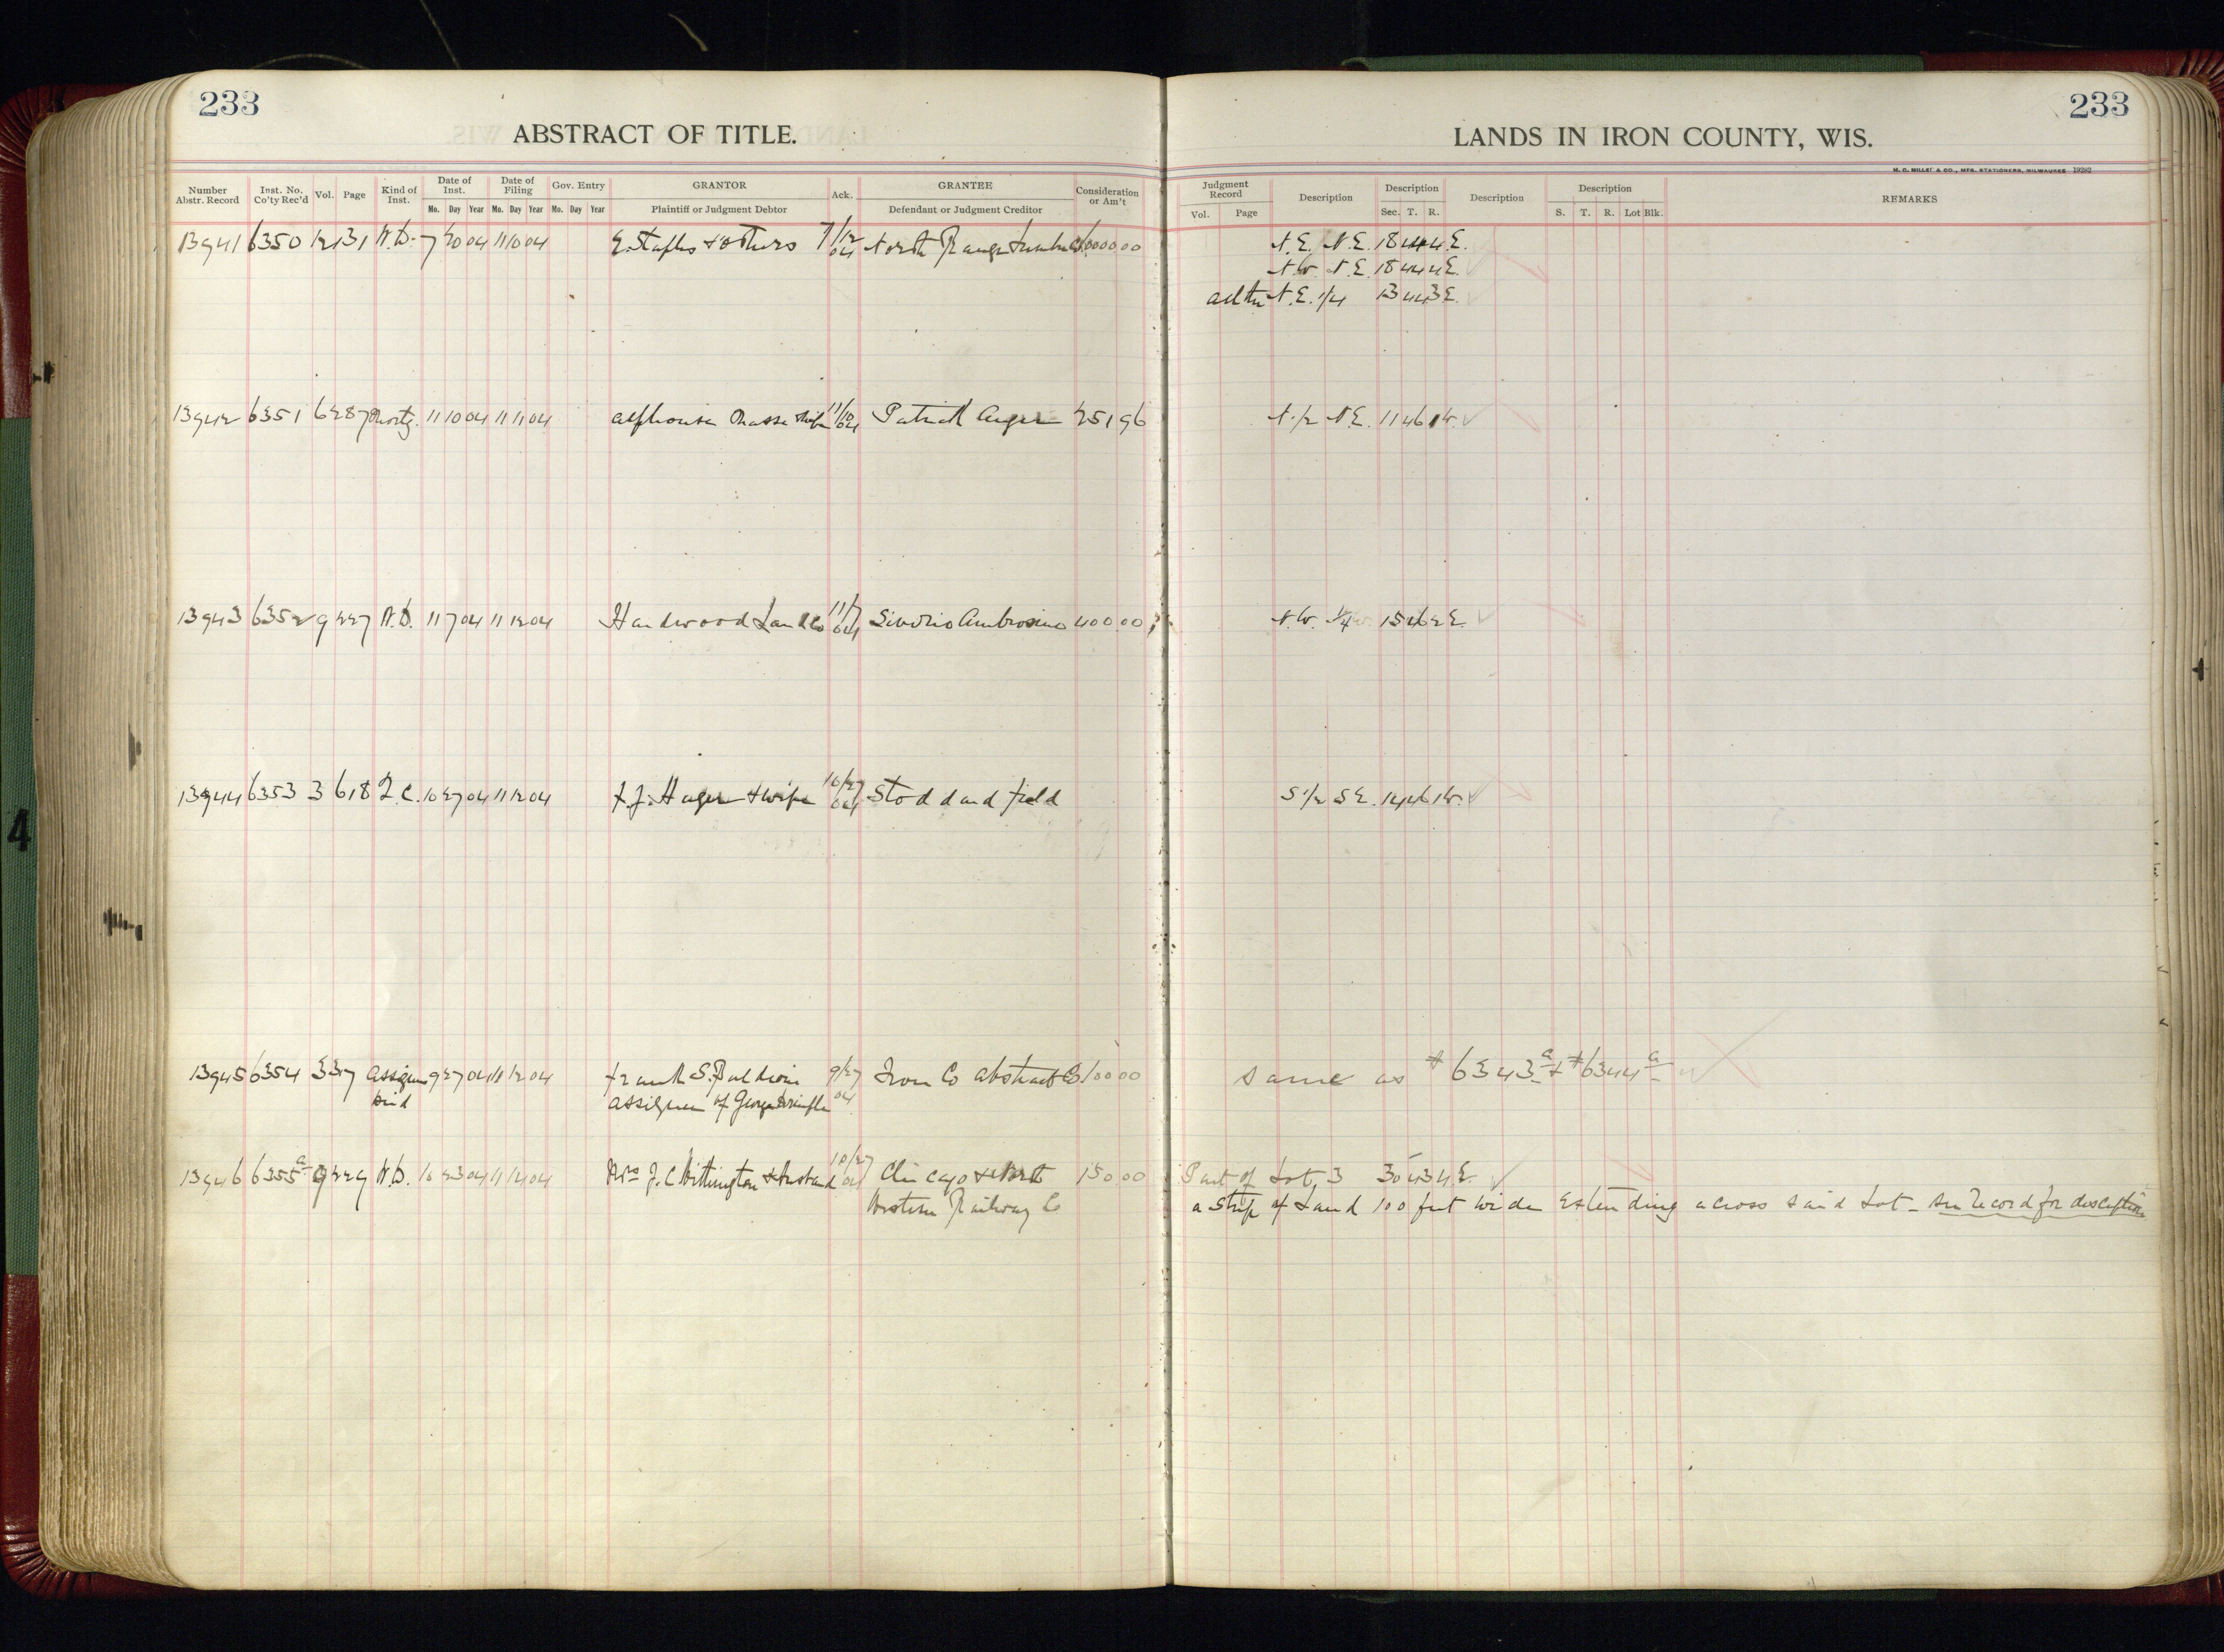 233
ABSTRACT OF TITLE.
Number Abstr. Record Inst. No. Co'ty Rec'd Vol. Page Kind of Inst. Date of Inst. Date of Filing Gov. Entry GRANTOR Ack. GRANTEE Consideration or Am't
Mo. Day Year Mo. Day Year Mo. Day Year Plaintiff or Judgment Debtor Defendant or Judgment Creditor
13941 6350 12 131 W.D. 7 04 11 10 04 E. Staples & others 7/12 04 North Range Lumber
13942 6351 6 287 Mortg. 11 10 04 11 11 04 Alphonse Masse & wife 11/10 04 Patrick 251 96
13943 6352 9 227 W.D. 11 7 04 11 12 04 Hardwood Land Co 11/7 04 Ambrosino 400 00
13944 6353 3 618 L.C. 10 27 04 11 12 04 F.J. Hager & wife 10/27 04 Stoddard Field
13945 6354 3 37 Assignm 9 27 04 11 12 04 Frank S. Baldwin 9/27 04 Iron Co Abstract Co 100 00
assignee of George
13946 6355 a 9 229 W.D. 10 23 04 11 04 Mrs J.C. Withington & Husband 10/27 04 Chicago & North 150 00
Western Railway Co
233
LANDS IN IRON COUNTY, WIS.
H. C. MILLER & CO., MFG. STATIONERS, MILWAUKEE 19282
Judgment Record Description Description Description Description REMARKS
Vol. Page Sec. T. R. S. T. R. Lot Blk.
N.E. N.E. 18 44 4 E.
N.W. N.E. 18 44 4 E.
N.E. 1/4 13 44 3 E.
N. 1/2 N.E. 11 46 1 W.
N.W. 1/4 15 46 2 E.
S 1/2 S.E. 14 46 1 W.
Same as #6343 a & #6344 a
Part of Lot 3 30 43 4 E
a strip of Land 100 feet wide Extending across said Lot - see record for description